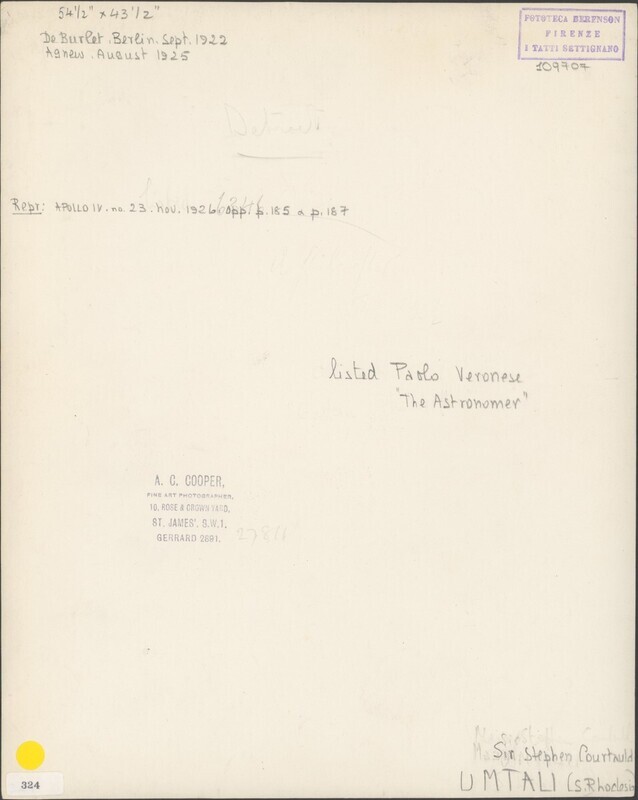 54 1/2" x 43 1/2"
De Burlet. Berlin. Sept. 1922
Agnew. August 1925
FOTOTECA BERENSON
FIRENZE
I TATTI SETTIGNANO
109707
Detroit
Repr: APOLLO IV. no. 23. Nov. 1926. opp. p. 185 & p. 187
listed Paolo Veronese
"The Astronomer"
A. C. COOPER,
FINE ART PHOTOGRAPHER,
10, ROSE & CROWN YARD,
ST. JAMES', S.W.1.
GERRARD 2691.
27811
Sir Stephen Courtauld
UMTALI (S. Rhodesia
324